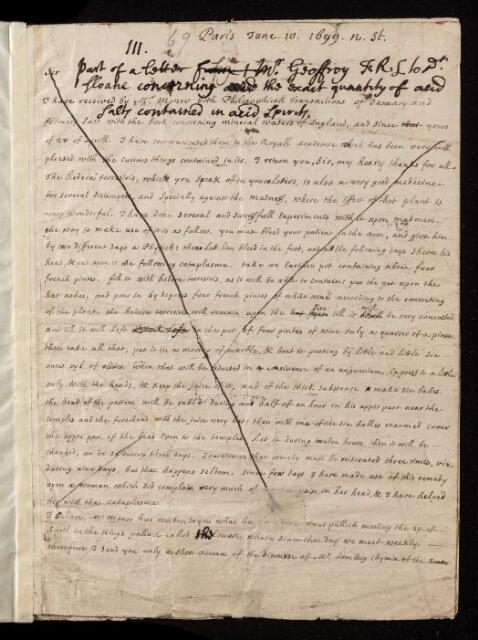 69 Paris June 10. 1699. n. St.
III.
Part of a Letter from Mr. Geoffroy F.R.S. to Dr.
Sir
Sloane concerning the exact quantity of acid
I have received by Mr. Monro both Philosophicall Transactions of January and
Salts contained in acid Spirits
February last with the book concerning mineral waters of England, and since yours
of of aprill. I have communicated them to the Royall academie which has been very well
pleased with the curious things contained in it. I return you, Sir, my hearty thanks for all.
The hedera terrestris, which you speak of in your letters, is also a very good medicine
for several distempers and specially against the madness, where the effect of that plant is
very wonderful. I have done several and successfull experiments with it upon madmen.
the way to make use of it is as follow. you must bleed your patient in the arm, and give him
by two different days a Physick: then let him bleed in the foot, and the following days Sheve his
head, & put upon it the following cataplasma. take an Earthen pot containing above four
french pintes. fill it with hedera terrestris, as it will be able to contain: put the pot upon the
hot ashes, and pour in by degrees four french pintes of white wine according to the consuming
of the plant. the hedera terrestris will remain upon the fire till it be very consumted
and till it will left in the pot of four pintes of wine only as quarter of a pinte.
then take all that, put it in a mortar of marble, & beat it pouring by litle and litle six
onces oyl of olives. When that will be reducted in a consistence of an unguentum, Express it a litle
only with the hands, & keep the juice of it, and of the thick substance make six balles.
the head of the patient will be rubb'd during half of an hour in his upper part near the
temples and the forehead with the juice very hot; then with one of the six balles warmed cover
the upper part of the head even to the temples. Let it during twelve hours, then it will be
changed, and so during three days. Sometimes that remedy must be reiterated three times, viz.
during nine days, but that happens seldom. Since few days I have made use of this remedy
upon a woman which did complain very much of pain in her head, & I have helped
her with that cataplasma.
I believe, Mr. Monro has written to you what the publick meeting the 29. of
April in the Kings pallace called the Louvre, where since that day we meet weekly.
therefore I send you only a short account of the discourse of Mr. Homberg chymist of the